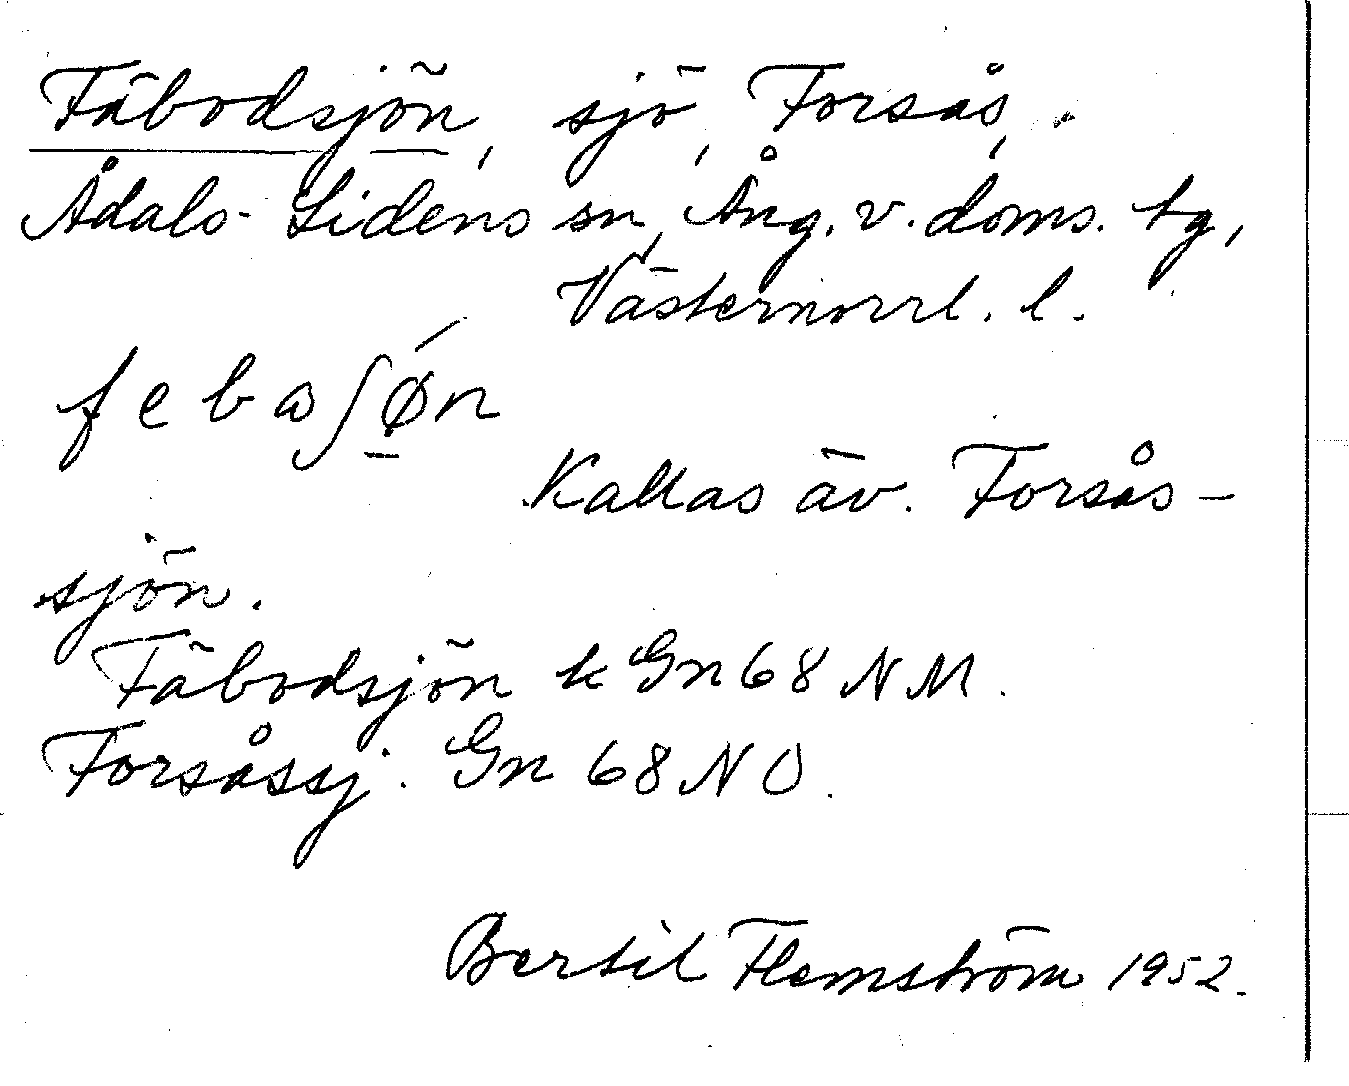 Fäbodsjön, sjö, Forsås,
Ådals-Lidens sn, Ång. v. doms. tg,
Västernorrl. l.
febaʃǿ̱n
Kallas äv. Forsås-
sjön.
Fäbodsjön k Gn 68 NM.
Forsåssj. Gn 68 NO.
Bertil Flemström 1952.